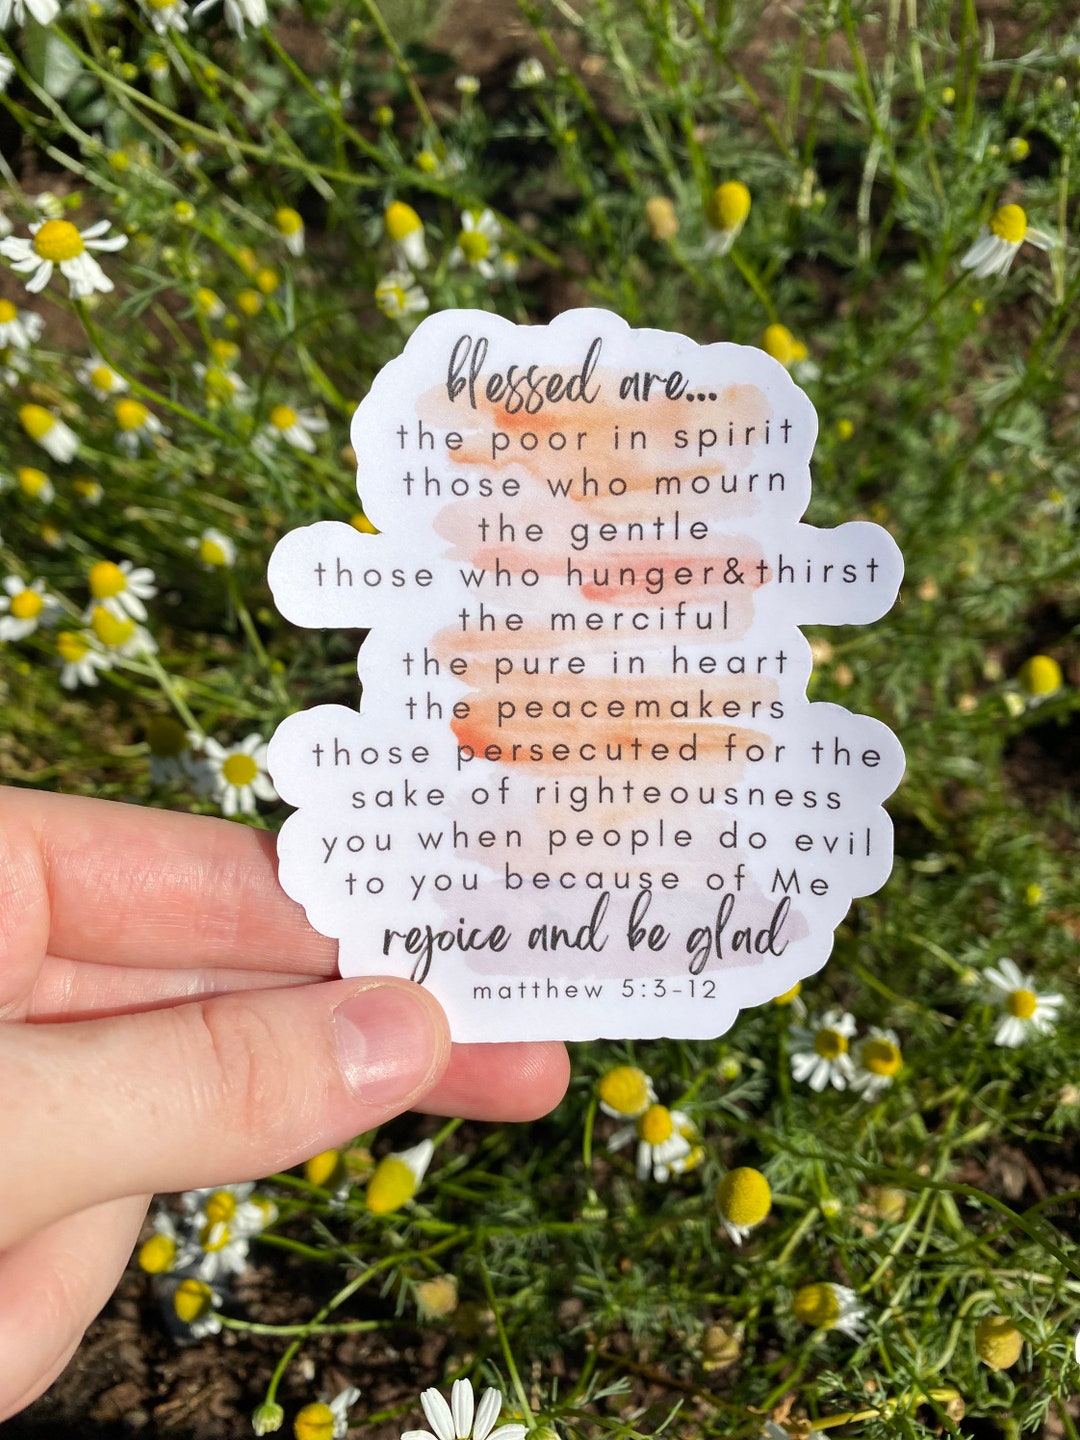 blessed are...
the poor in spirit
those who mourn
the gentle
those who hunger&thirst
the merciful
the pure in heart
the peacemakers
those persecuted for the
sake of righteousness
you when people do evil
to you because of Me
rejoice and be glad
matthew 5:3-12